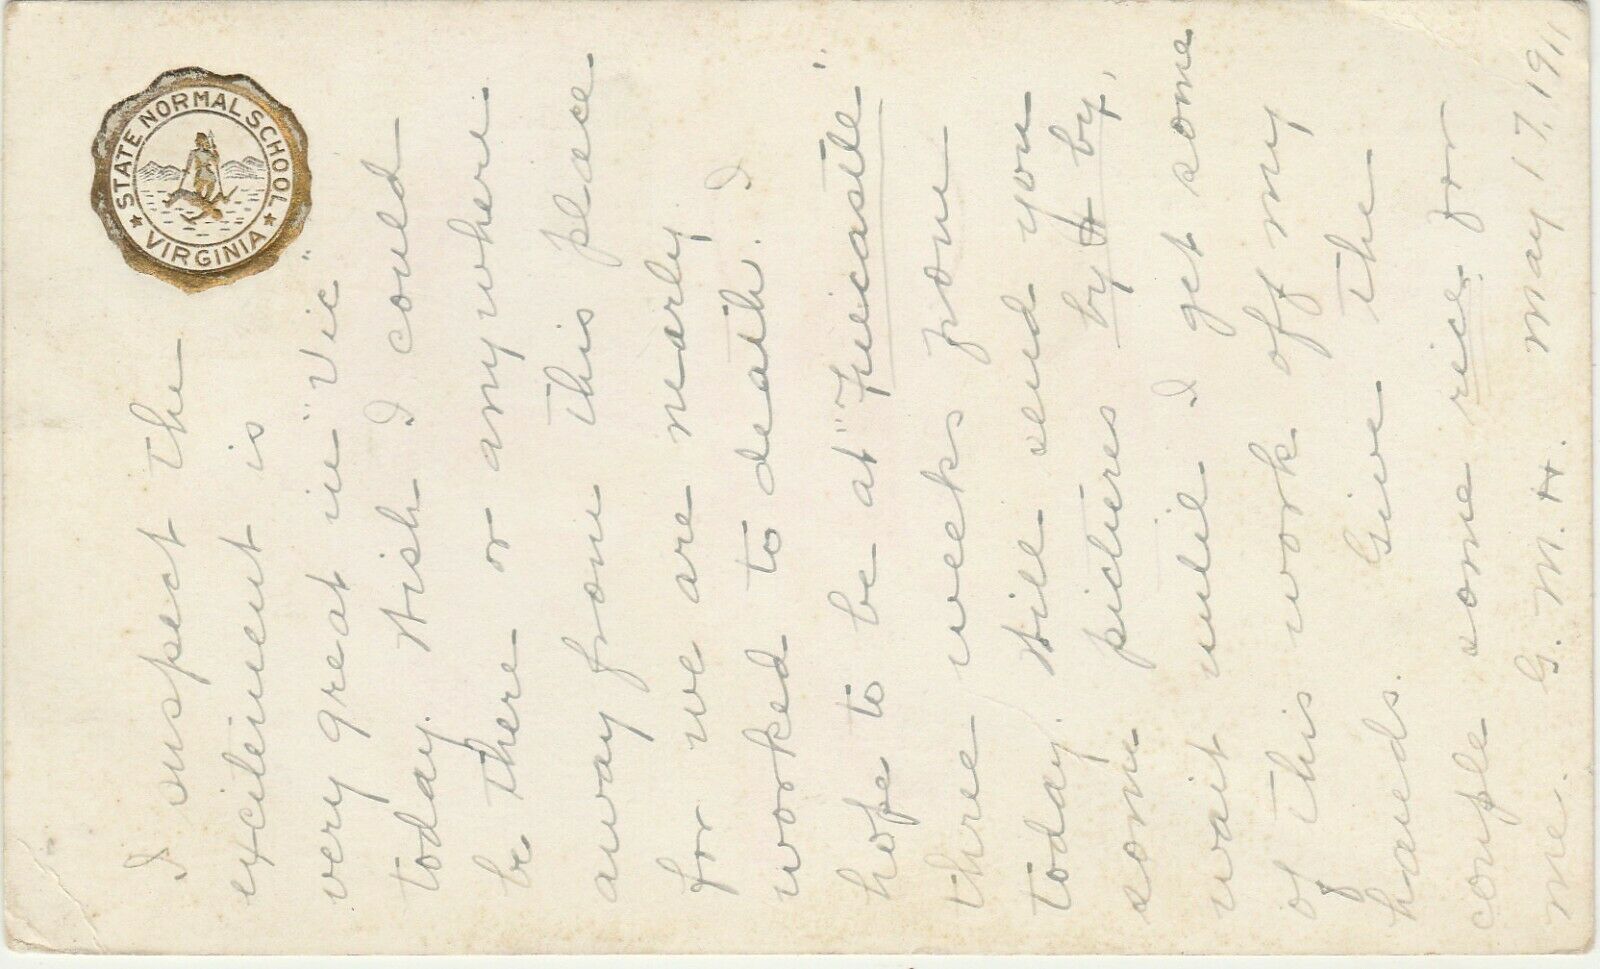 STATE NORMAL SCHOOL
VIRGINIA
I suspect the
excitement is
very great in "Vic"
today. Wish I could
be there or anywhere
away from this place
for we are nearly
worked to death. I
hope to be at "Fincastle"
three weeks from
today. Will send you
some pictures by & by,
wait until I get some
of this work off my
hands. Give the
couple some rice for
me. G. M. H. May 17, 1911